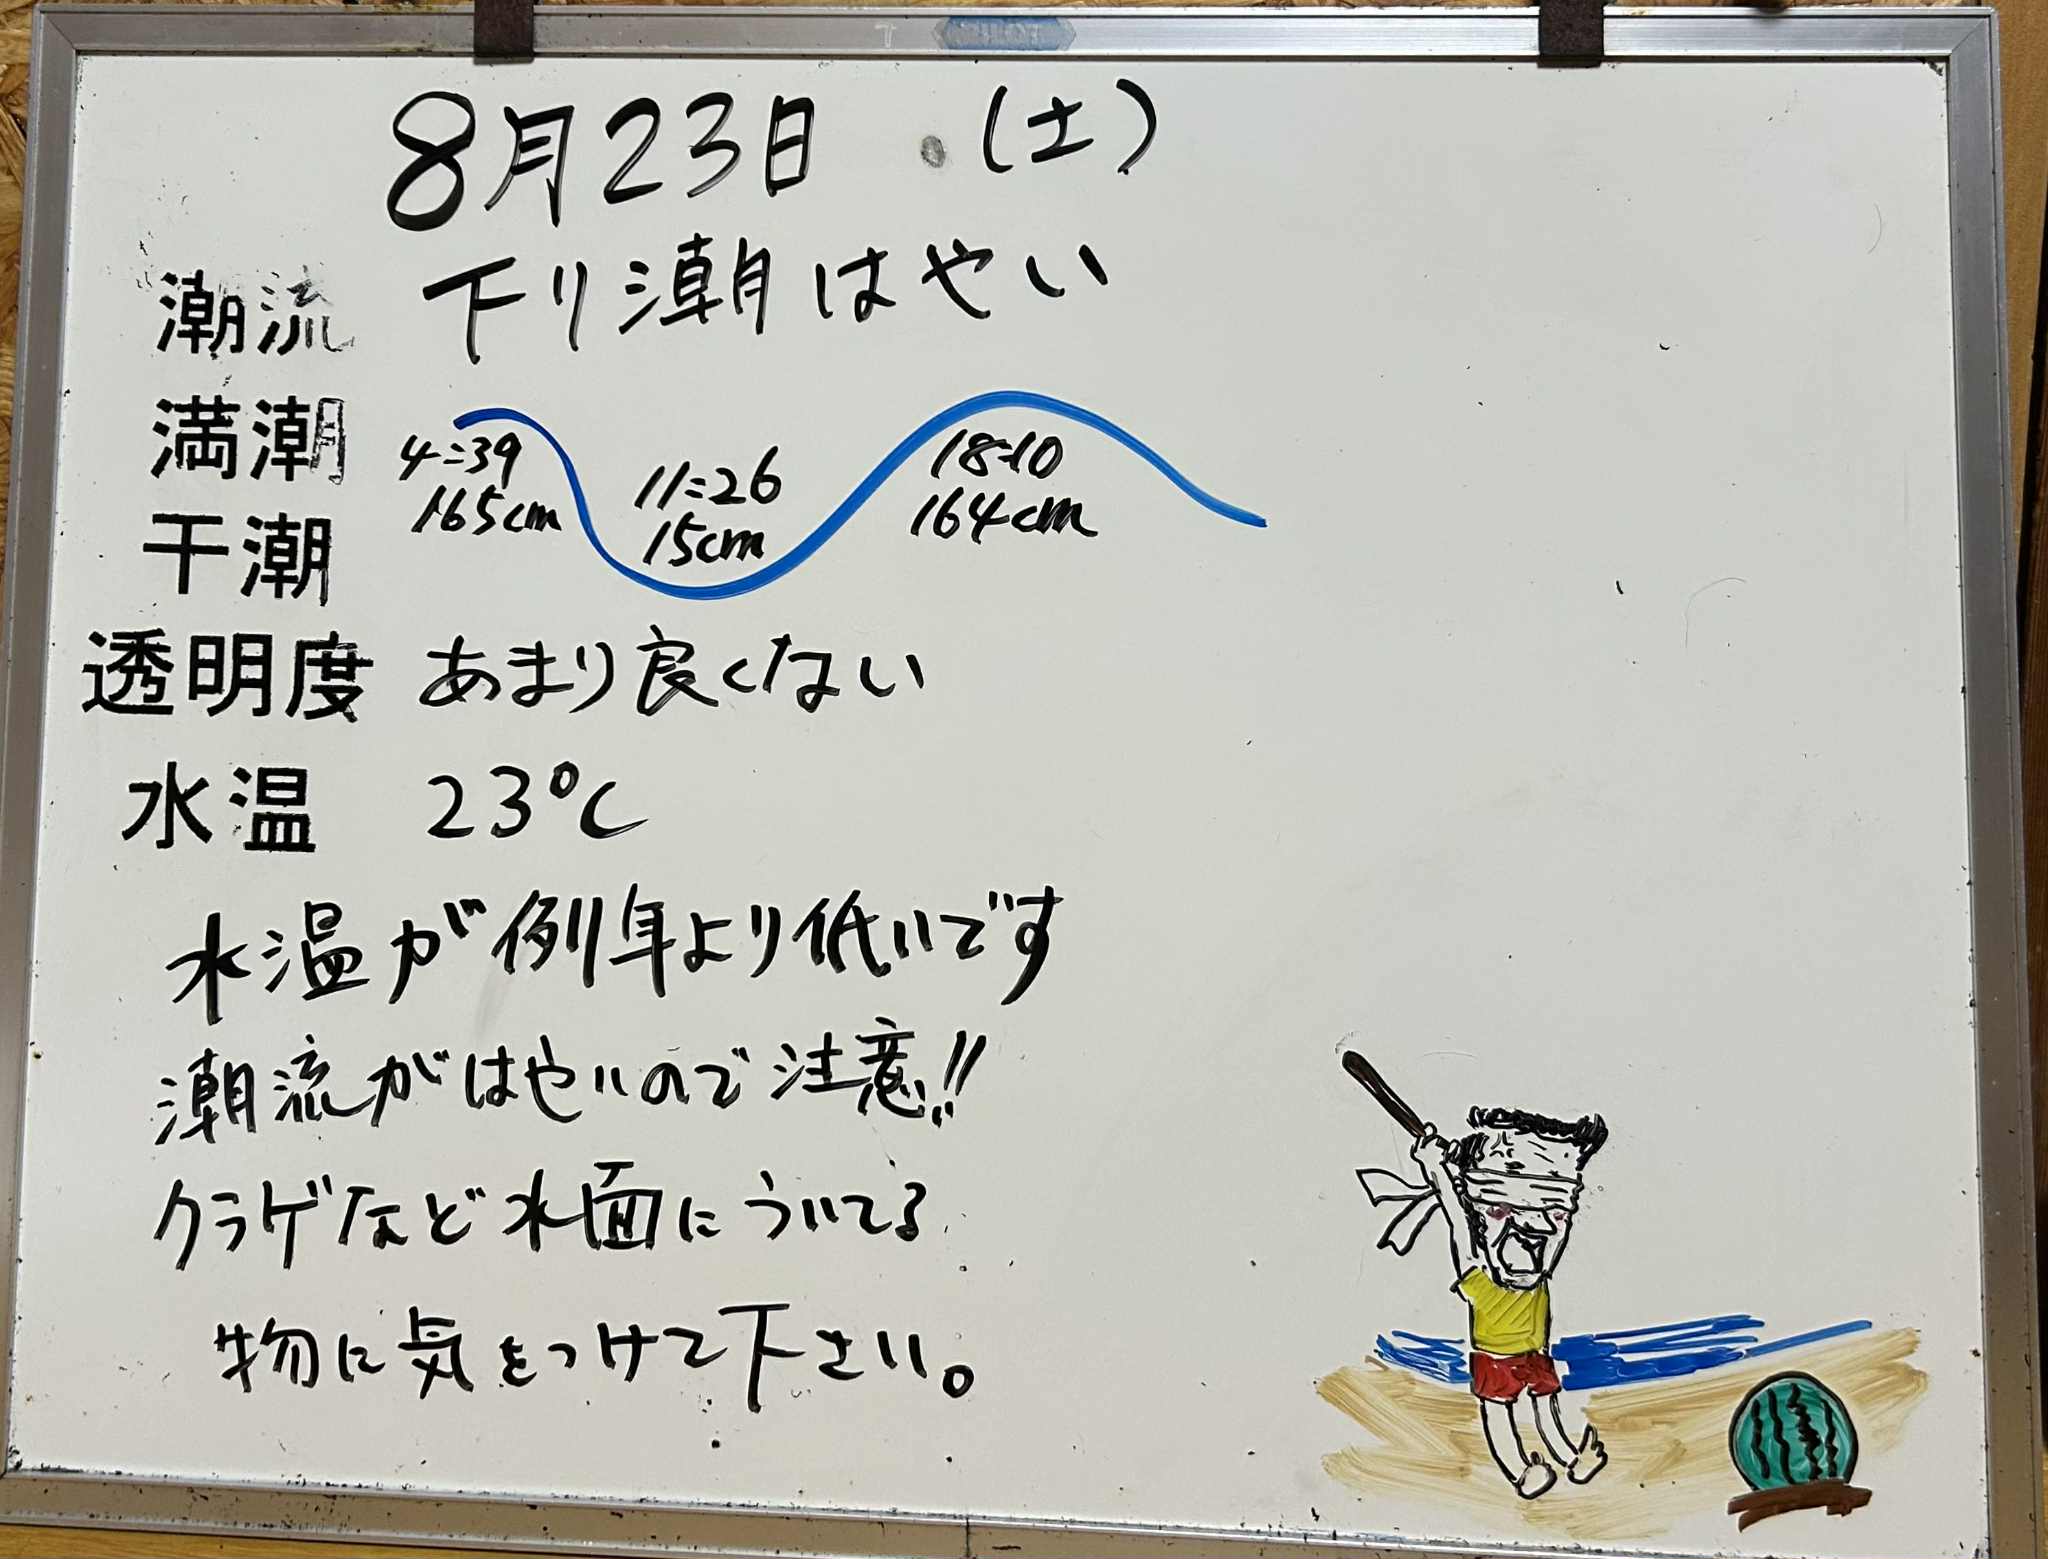 8月23日 (土)
潮流 下り潮はやい
満潮 4:39 165cm 18:10 164cm
干潮 11:26 15cm
透明度 あまり良くない
水温 23℃
水温が例年より低いです
潮流がはやいので注意!!
クラゲなど水面にういてる
物に気をつけて下さい。